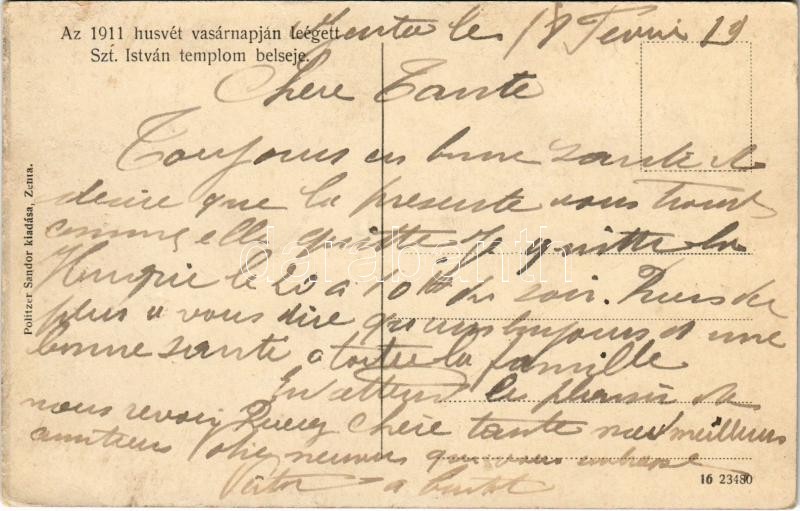 Az 1911 husvét vasárnapján leégett
Szt. István templom belseje.
Zenta le 18 Fevrie 19
Chère Tante
Toujours en bonne santé et
desire que la presente vous trouve
comme elle quitte Je quitte la
Hongrie le 20 a 10h du soir. Rien de
plus a vous dire qu'un toujours d une
bonne santé a toute la famille
En attend le plaisir de
nous revoir Recevez Chère tante nos meilleurs
amitiées neuveu qui vous embrasse
Victor
Politzer Sándor kiadása, Zenta.
16 23480
darabanth